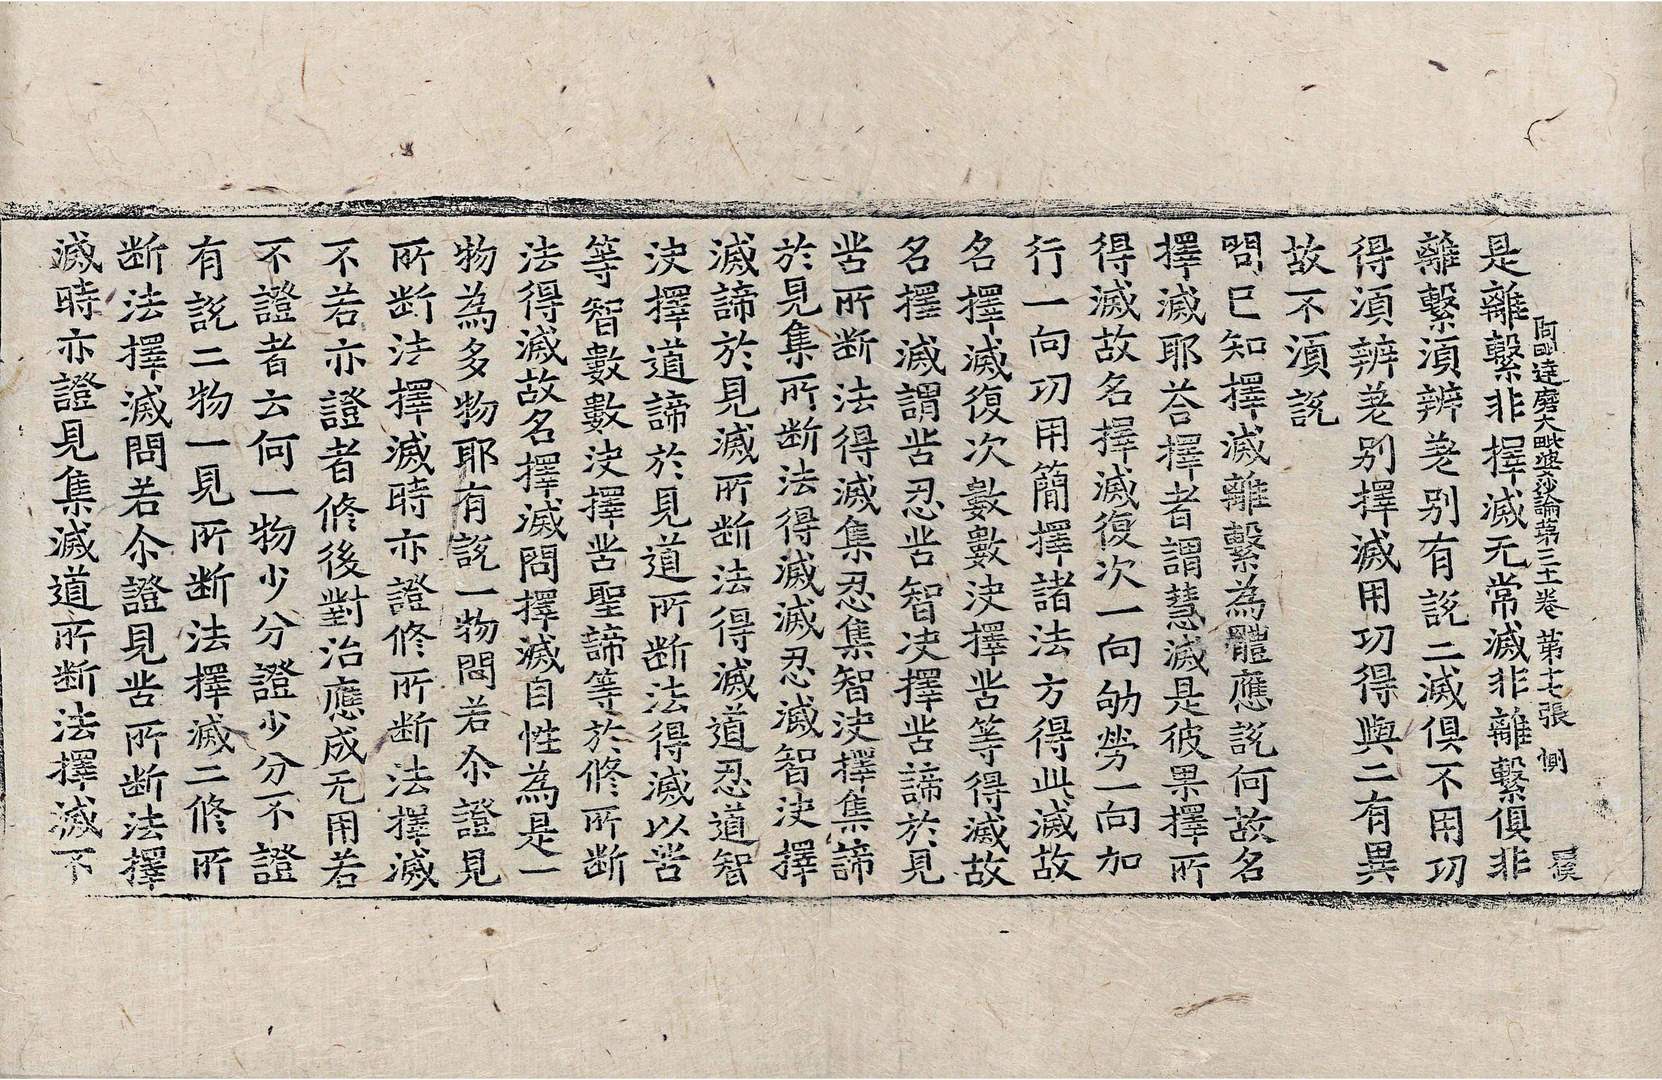 阿毗達磨大毗婆沙論第三十一卷 第十七張 惻
是離繫非擇滅无常滅非離繫俱非
離繫湏辨差别有說二滅俱不用功
得湏辨差别擇滅用功得與二有異
故不湏說
問已知擇滅離繫為體應說何故名
擇滅耶荅擇者謂慧滅是彼果擇所
得滅故名擇滅復次一向劬勞一向加
行一向功用簡擇諸法方得此滅故
名擇滅復次數數决擇苦等得滅故
名擇滅謂苦忍苦智决擇苦諦於見
苦所断法得滅集忍集智决擇集諦
於見集所断法得滅滅忍滅智决擇
滅諦於見滅所断法得滅道忍道智
决擇道諦於見道所断法得滅以苦
等智數數决擇苦聖諦等於修所断
法得滅故名擇滅問擇滅自性為是一
物為多物耶有說一物問若尒證見
所断法擇滅時亦證修所断法擇滅
不若亦證者修後對治應成无用若
不證者云何一物少分證少分不證
有說二物一見所断法擇滅二修所
断法擇滅問若尒證見苦所断法擇
滅時亦證見集滅道所断法擇滅不